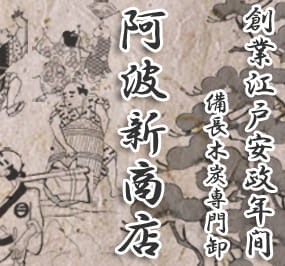 創業江戸安政年间
備長木炭専門卸
阿波新商店